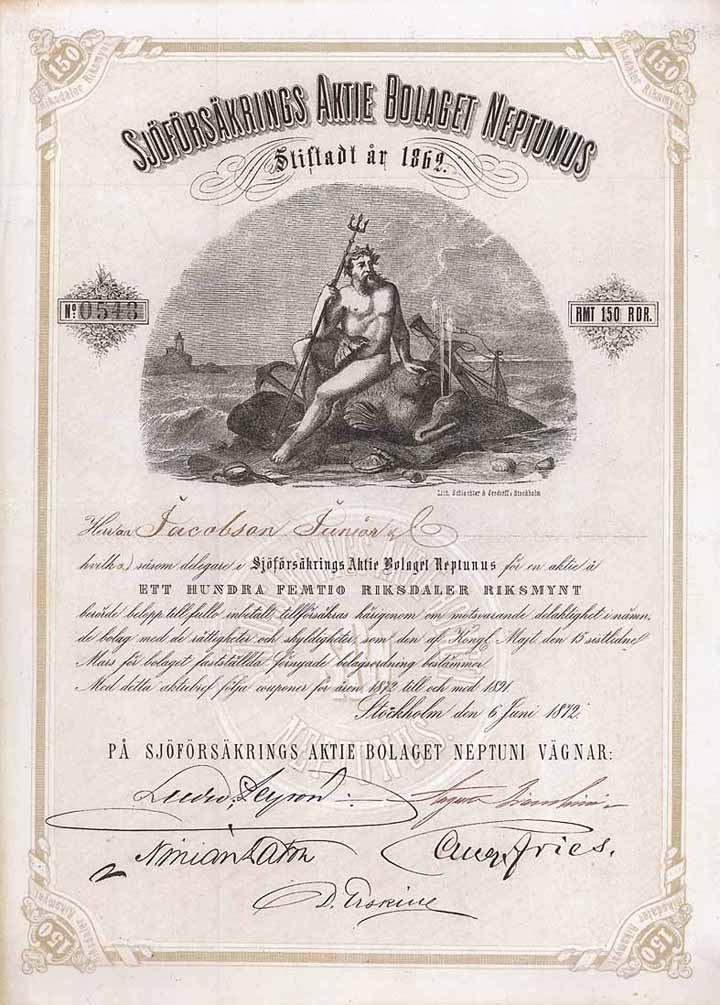 150
150
Riksdaler Riksmynt
Riksdaler Riksmynt
SJÖFÖRSÄKRINGS AKTIE BOLAGET NEPTUNUS
Stiftadt år 1862.
No 0543
RMT 150 RDR.
Lith. Schlachter & Seedorff, Stockholm
Herrar Jacobson Junior & C
hvilk a) såsom delegare i Sjöförsäkrings Aktie Bolaget Neptunus för en aktie å
ETT HUNDRA FEMTIO RIKSDALER RIKSMYNT
berörde belopp till fullo inbetalt, tillförsäkras härigenom om motsvarande delaktighet i nämn,
de bolag med de rättigheter och skyldigheter, som den af Kongl. Majt. den 15 sistledne
Mars för bolaget fastställda förnyade bolagsordning bestämmer.
Med detta aktiebref följa couponer för åren 1872 till och med 1891.
Stockholm den 6 Juni 1872.
PÅ SJÖFÖRSÄKRINGS AKTIE BOLAGET NEPTUNI VÄGNAR:
NEPTUNUS
August
Aug. Fries.
D. Erskine
150
150
Riksdaler Riksmynt
Riksdaler Riksmynt